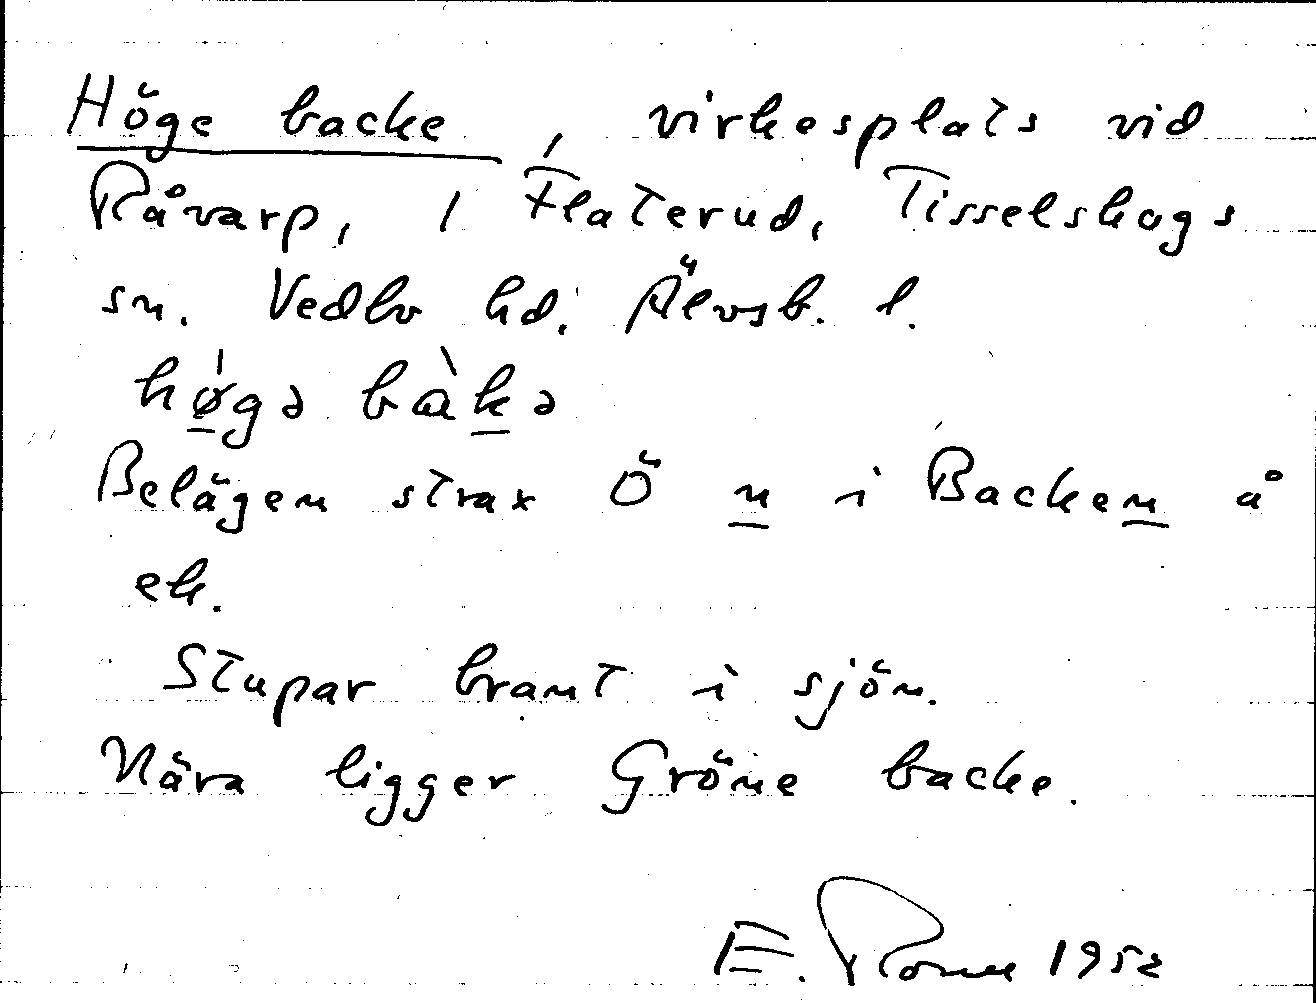 Höge backe, virkesplats vid
Råvarp, 1 Flaterud, Tisselskogs
sn. Vedbo hd. Älvsb. l.
høgə bàkə
Belägen strax Ö n i Backen å
ek.
Stupar brant i sjön.
Nära ligger Gröne backe.
E. 1952